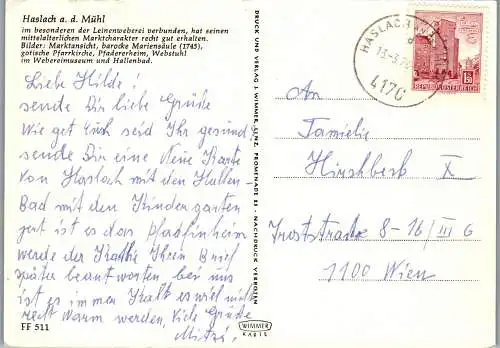 Haslach a. d. Mühl
im besonderen der Leinenweberei verbunden, hat seinen
mittelalterlichen Marktcharakter recht gut erhalten.
Bilder: Marktansicht, barocke Mariensäule (1745),
gotische Pfarrkirche, Pfadererheim, Webstuhl
im Webereimuseum und Hallenbad.
Liebe Hilde!
sende Dir liebe Grüße
Wie get Euch seid Ihr gesund
sende Dir eine Neue Karte
von Haslach mit den Hallen-
Bad mit den Kinder garten
jezt ist es das Pfadfinheim
werde der Kathie Ihren Brief
später beantworten bei uns
ist es immer Kalt es will nicht
recht Warm werden, Viele Grüße
Mitzi
FF 511
DRUCK UND VERLAG J. WIMMER, LINZ, PROMENADE 23 - NACHDRUCK VERBOTEN
WIMMER
KARTE
HASLACH
4170
REPUBLIK ÖSTERREICH
An
Familie
Hirschbeck X
Troststraße 8-16/III 6
1100 Wien